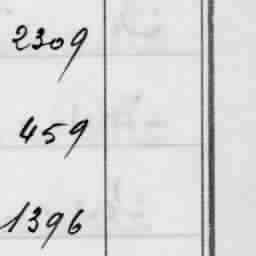 2309
459
1396